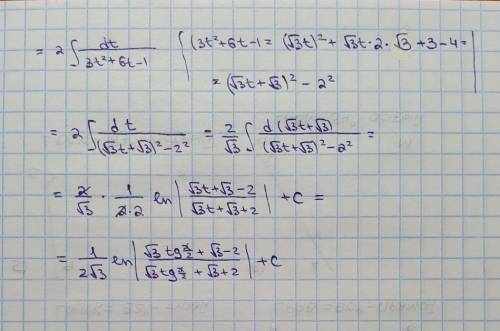 = 2 ∫ dt / (3t²+6t-1) { (3t²+6t-1 = (√3t)² + √3t·2·√3 + 3 - 4 = |
= (√3t+√3)² - 2²
= 2 ∫ dt / ((√3t+√3)² - 2²) = 2/√3 ∫ d(√3t+√3) / ((√3t+√3)² - 2²) =
= 2/√3 · 1/(2·2) ln| (√3t+√3-2) / (√3t+√3+2) | + C =
= 1/(2√3) ln| (√3 tg x/2 + √3-2) / (√3 tg x/2 + √3+2) | + C